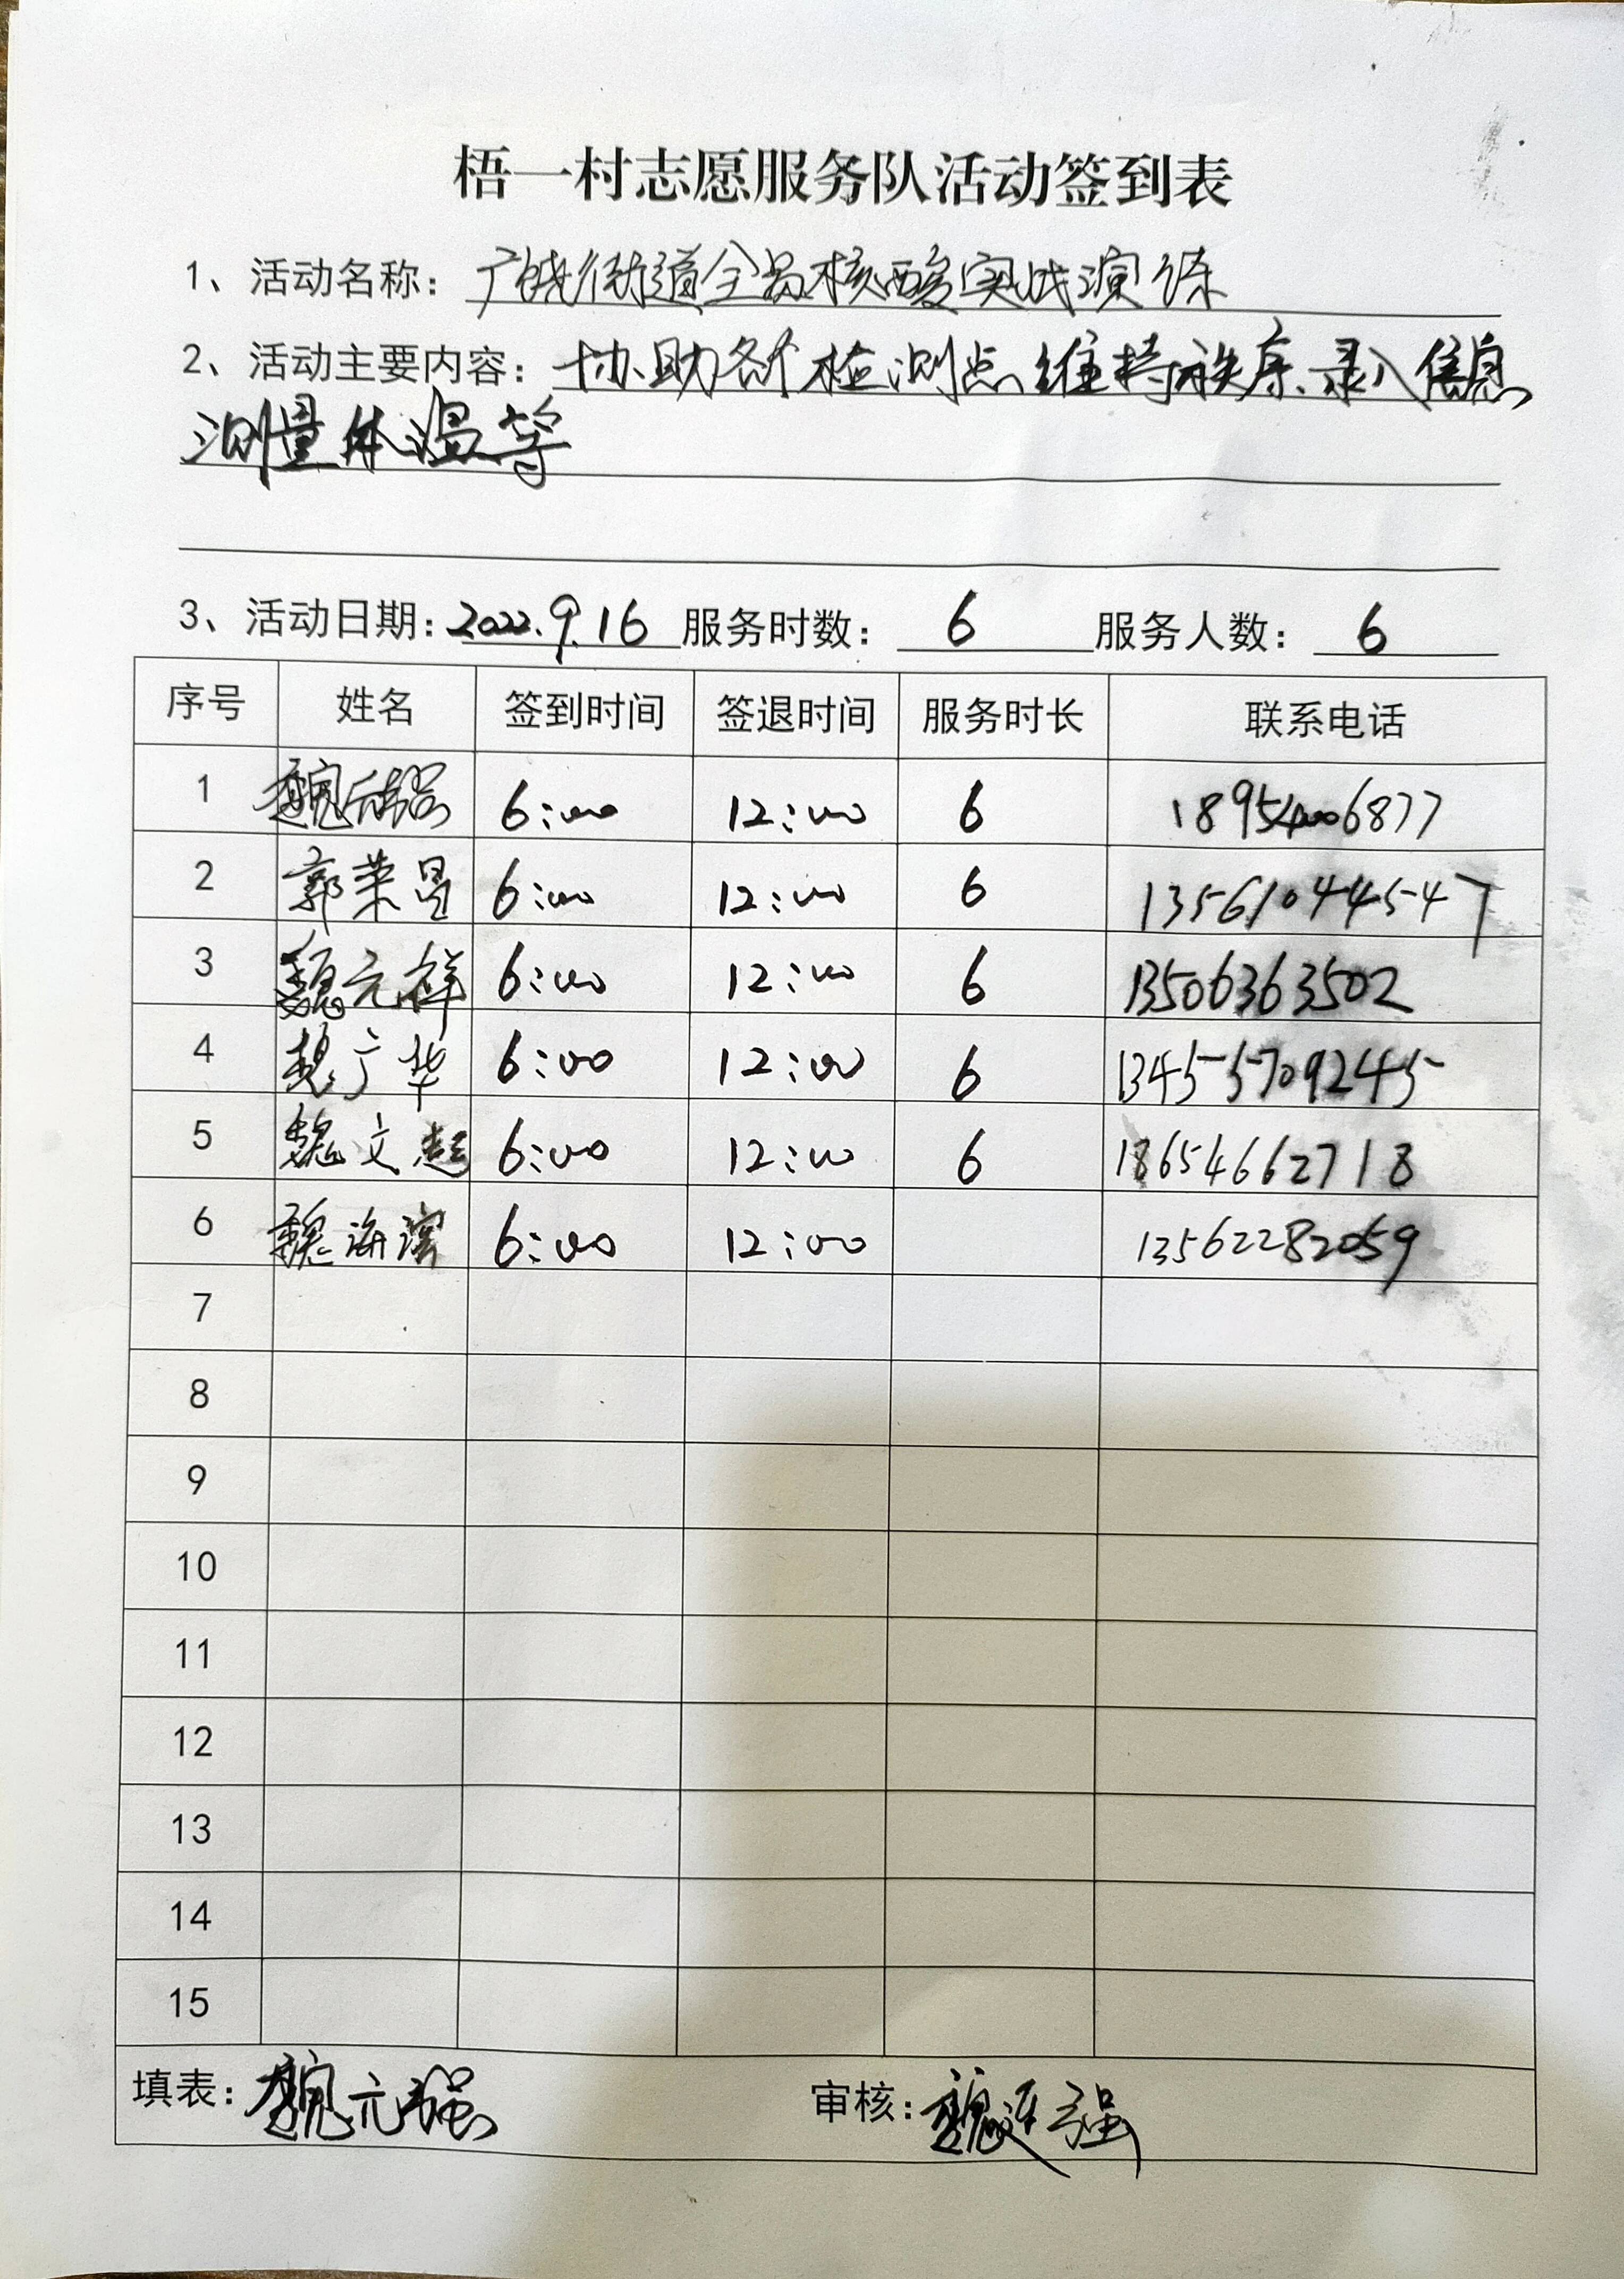 梧一村志愿服务队活动签到表
1、活动名称：广饶街道全员核酸实战演练
2、活动主要内容：协助各个检测点维持秩序、录入信息
测量体温等
3、活动日期：2022.9.16 服务时数：6 服务人数：6
序号 姓名 签到时间 签退时间 服务时长 联系电话
1 魏 6:00 12:00 6 18954006877
2 郭荣昌 6:00 12:00 6 13561044547
3 魏元祥 6:00 12:00 6 13506363502
4 魏广华 6:00 12:00 6 13455709245
5 魏文超 6:00 12:00 6 18654662718
6 魏海滨 6:00 12:00 13562282059
7
8
9
10
11
12
13
14
15
填表：魏元强 审核：魏连强